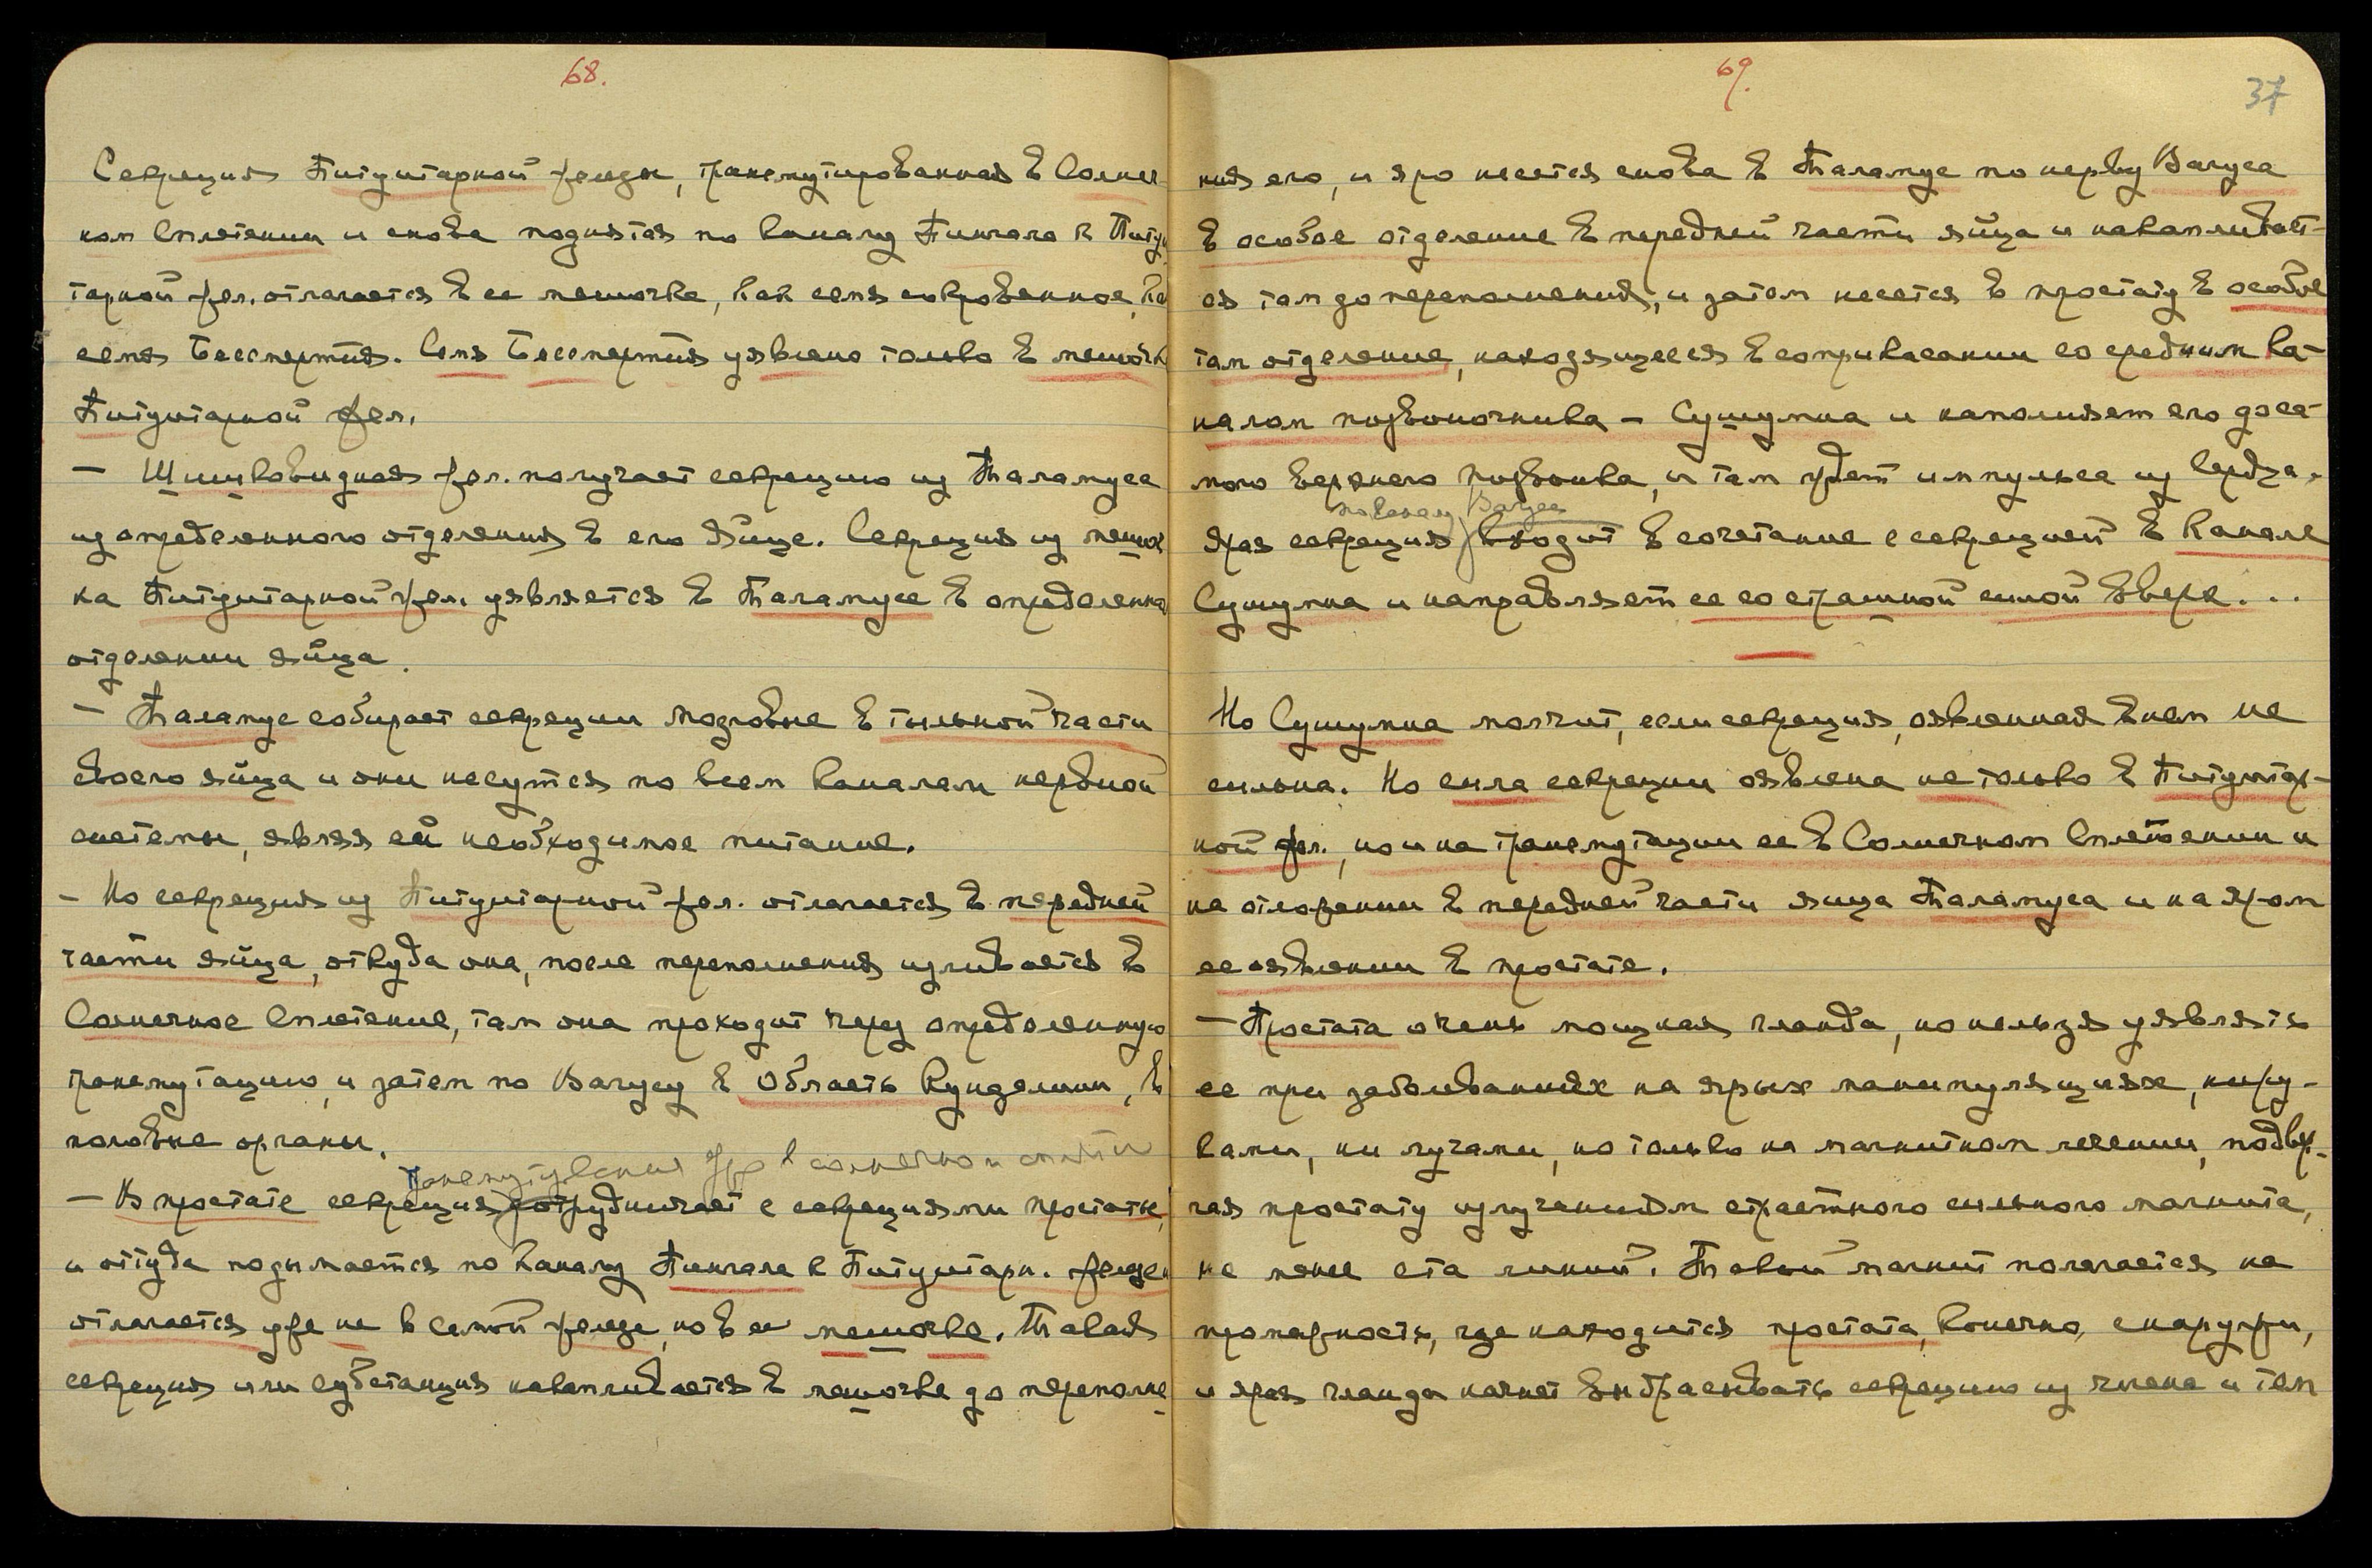 68.
Секреция Питуитарной железы, трансмутированная в Солнеч-
ном Сплетении и снова поднятая по каналу Пингала к Питуи
тарной жел. отлагается в ее мешочке, как семя сокровенное, как
семя Бессмертия. Семя Бессмертия уявлено только в мешочке
Питуитарной жел.
— Шишковидная жел. получает секрецию из Таламуса
из определенного отделения в его яйце. Секреция из мешоч
ка Питуитарной жел. уявляется в Таламусе в определенном
отделении яйца.
— Таламус собирает секреции мозговые в тыльной части
своего яйца и они несутся по всем каналам нервной
системы, являя ей необходимое питание.
— Но секреция из Питуитарной жел. отлагается в передней
части яйца, откуда она, после переполнения изливается в
Солнечное Сплетение, там она проходит через определенную
трансмутацию, и затем по Вагусу в область Кундалини, в
половые органы.
в солнечном
— В простате секреция сотрудничает с секрециями простаты,
и оттуда подымается по каналу Пингала к Питуитарн. железе
отлагается уже не в самой железе, но в ее мешочке. Такая
секреция или субстанция накапливается в мешочке до переполне
69.
37
ния его, и яро несется снова в Таламус по нерву Вагуса
в особое отделение в передней части яйца и накапливает-
ся там до переполнения, и затем несется в простату в особое
там отделение, находящееся в соприкасании со средним ка-
налом позвоночника — Сушумна и наполняет его до са-
мого верхнего позвонка, и там ждет импульса из сердца.
по каналу Вагуса
Ярая секреция входит в сочетание с секрецией в канале
Сушумна и направляет ее со страшной силой вверх...
Но Сушумна молчит, если секреция, оявленная в нем не
сильна. Но сила секреции оявлена не только в Питуитар-
ной жел., но и на трансмутации ее в Солнечном Сплетении и
на отложении в передней части яйца Таламуса и на яром
ее оявлении в простате.
— Простата очень мощная гланда, но нельзя уявлять
ее при заболеваниях на ярых манипуляциях, ни ру-
ками, ни лучами, но только на магнитном лечении, подвер-
гая простату излучениям страстного сильного магнита,
не менее ста линий. Такой магнит полагается на
промежность, где находится простата, конечно, снаружи,
и ярая гланда начнет выбрасывать секрецию из члена и тем